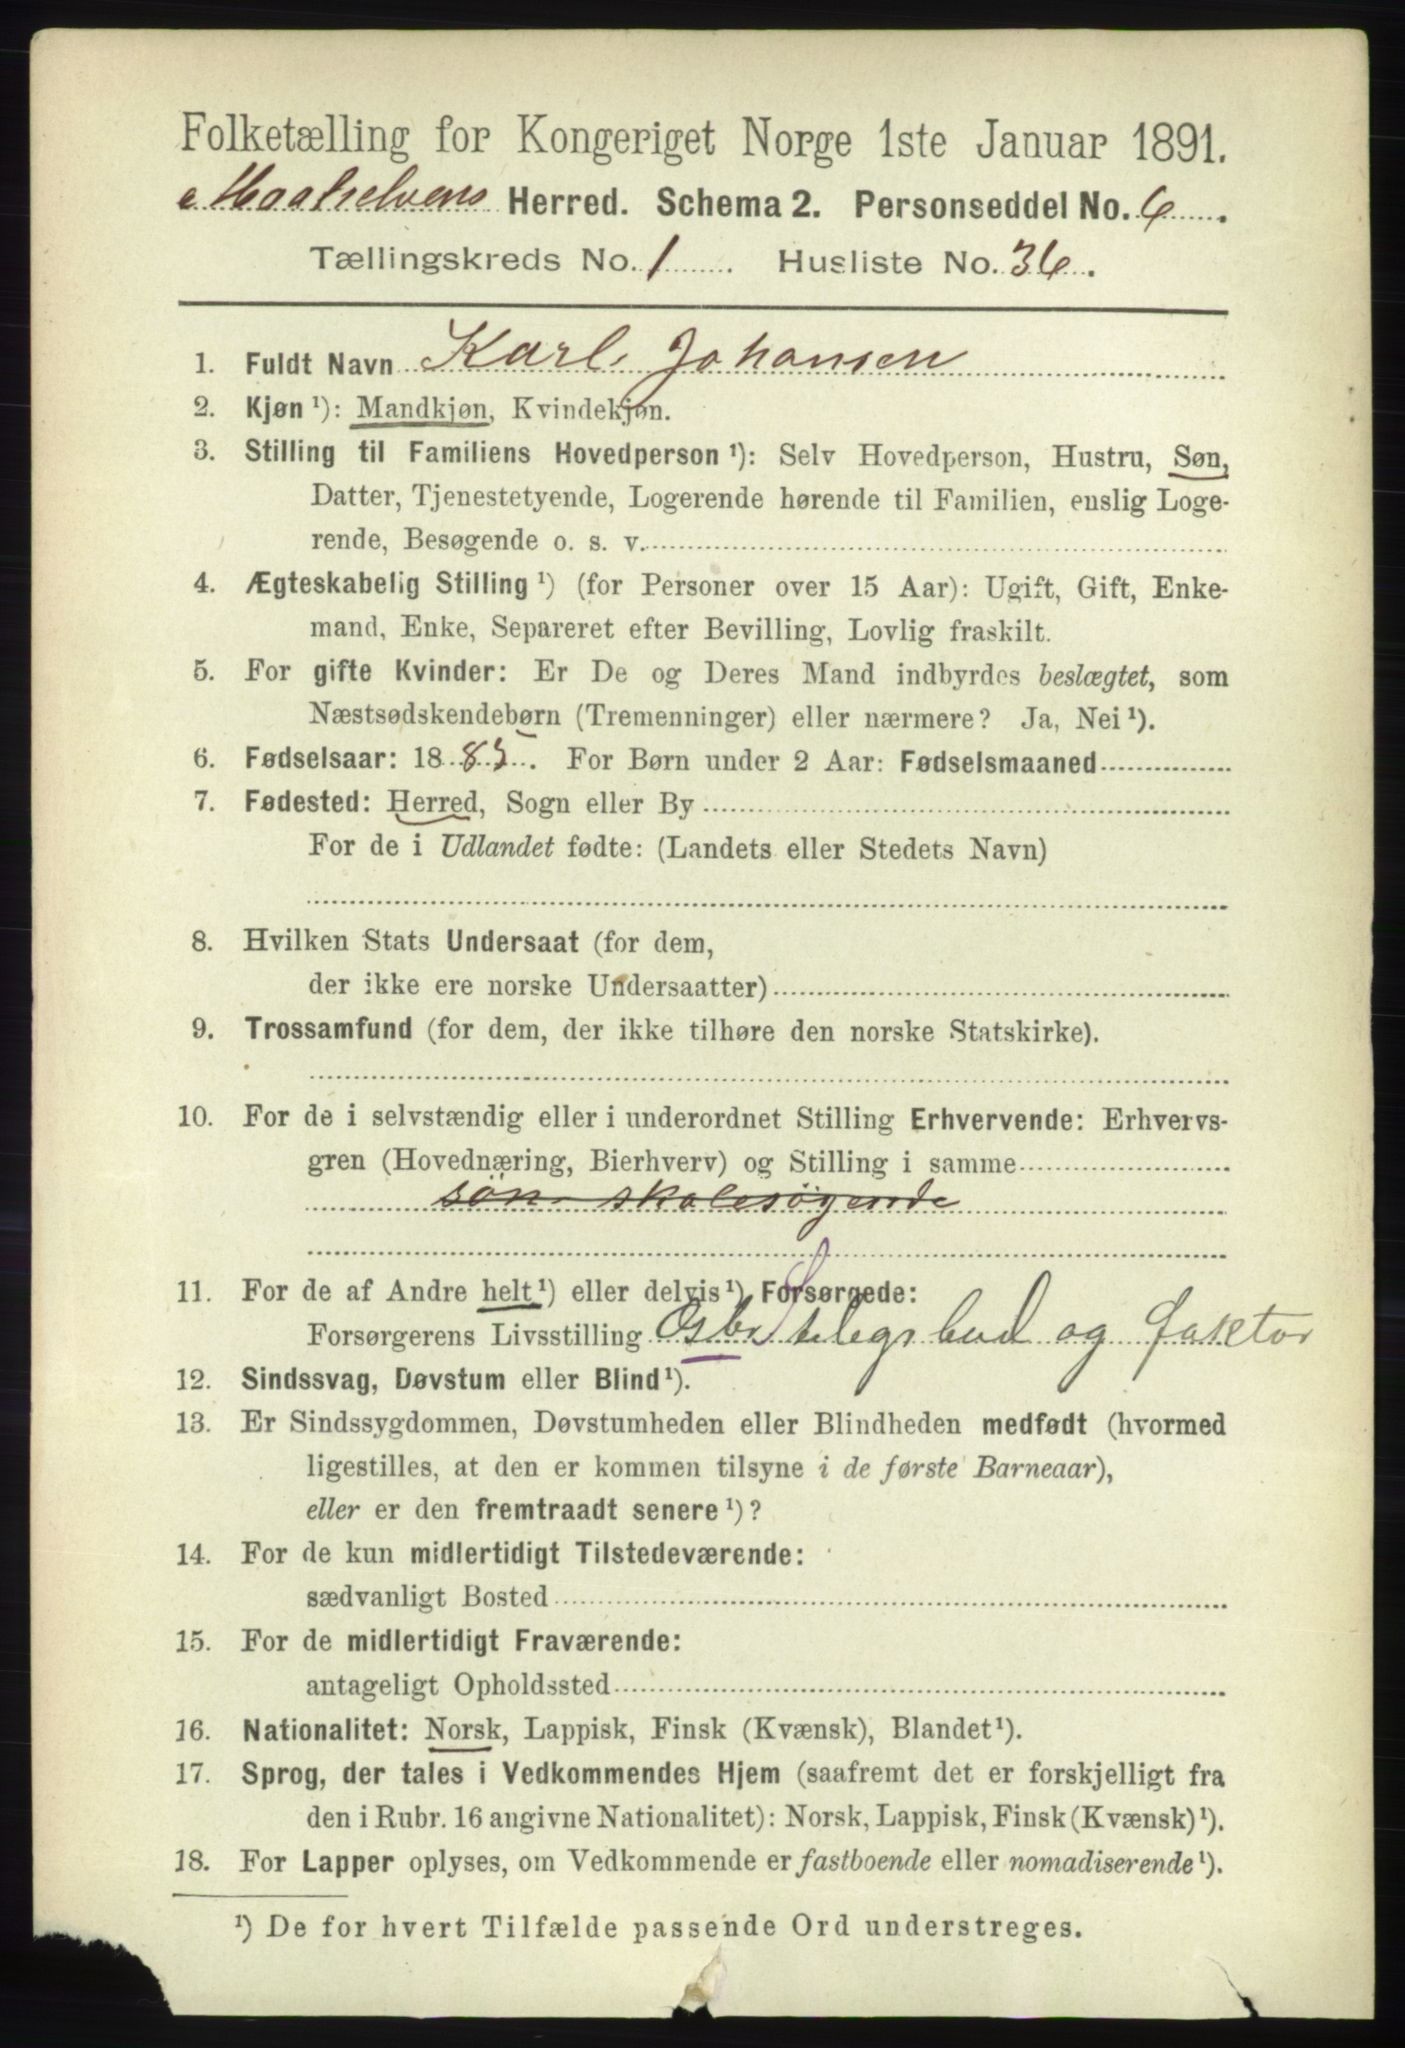 Folketælling for Kongeriget Norge 1ste Januar 1891.
Maalselvens Herred. Schema 2. Personseddel No. 6.
Tællingskreds No. 1. Husliste No. 36.
1. Fuldt Navn Karl Johansen
2. Kjøn ¹): Mandkjøn, Kvindekjøn.
3. Stilling til Familiens Hovedperson ¹): Selv Hovedperson, Hustru, Søn,
Datter, Tjenestetyende, Logerende hørende til Familien, enslig Loge-
rende, Besøgende o. s. v.
4. Ægteskabelig Stilling ¹) (for Personer over 15 Aar): Ugift, Gift, Enke-
mand, Enke, Separeret efter Bevilling, Lovlig fraskilt.
5. For gifte Kvinder: Er De og Deres Mand indbyrdes beslægtet, som
Næstsødskendebørn (Tremenninger) eller nærmere? Ja, Nei ¹).
6. Fødselsaar: 1885. For Børn under 2 Aar: Fødselsmaaned
7. Fødested: Herred, Sogn eller By
For de i Udlandet fødte: (Landets eller Stedets Navn)
8. Hvilken Stats Undersaat (for dem,
der ikke ere norske Undersaatter)
9. Trossamfund (for dem, der ikke tilhøre den norske Statskirke).
10. For de i selvstændig eller i underordnet Stilling Erhvervende: Erhvervs-
gren (Hovednæring, Bierhverv) og Stilling i samme
søn skolesøgende
11. For de af Andre helt ¹) eller delvis ¹) Forsørgede:
Forsørgerens Livsstilling telegrbud og faktor
12. Sindssvag, Døvstum eller Blind ¹).
13. Er Sindssygdommen, Døvstumheden eller Blindheden medfødt (hvormed
ligestilles, at den er kommen tilsyne i de første Barneaar),
eller er den fremtraadt senere ¹)?
14. For de kun midlertidigt Tilstedeværende:
sædvanligt Bosted
15. For de midlertidigt Fraværende:
antageligt Opholdssted
16. Nationalitet: Norsk, Lappisk, Finsk (Kvænsk), Blandet ¹).
17. Sprog, der tales i Vedkommendes Hjem (saafremt det er forskjelligt fra
den i Rubr. 16 angivne Nationalitet): Norsk, Lappisk, Finsk (Kvænsk) ¹).
18. For Lapper oplyses, om Vedkommende er fastboende eller nomadiserende ¹).
¹) De for hvert Tilfælde passende Ord understreges.